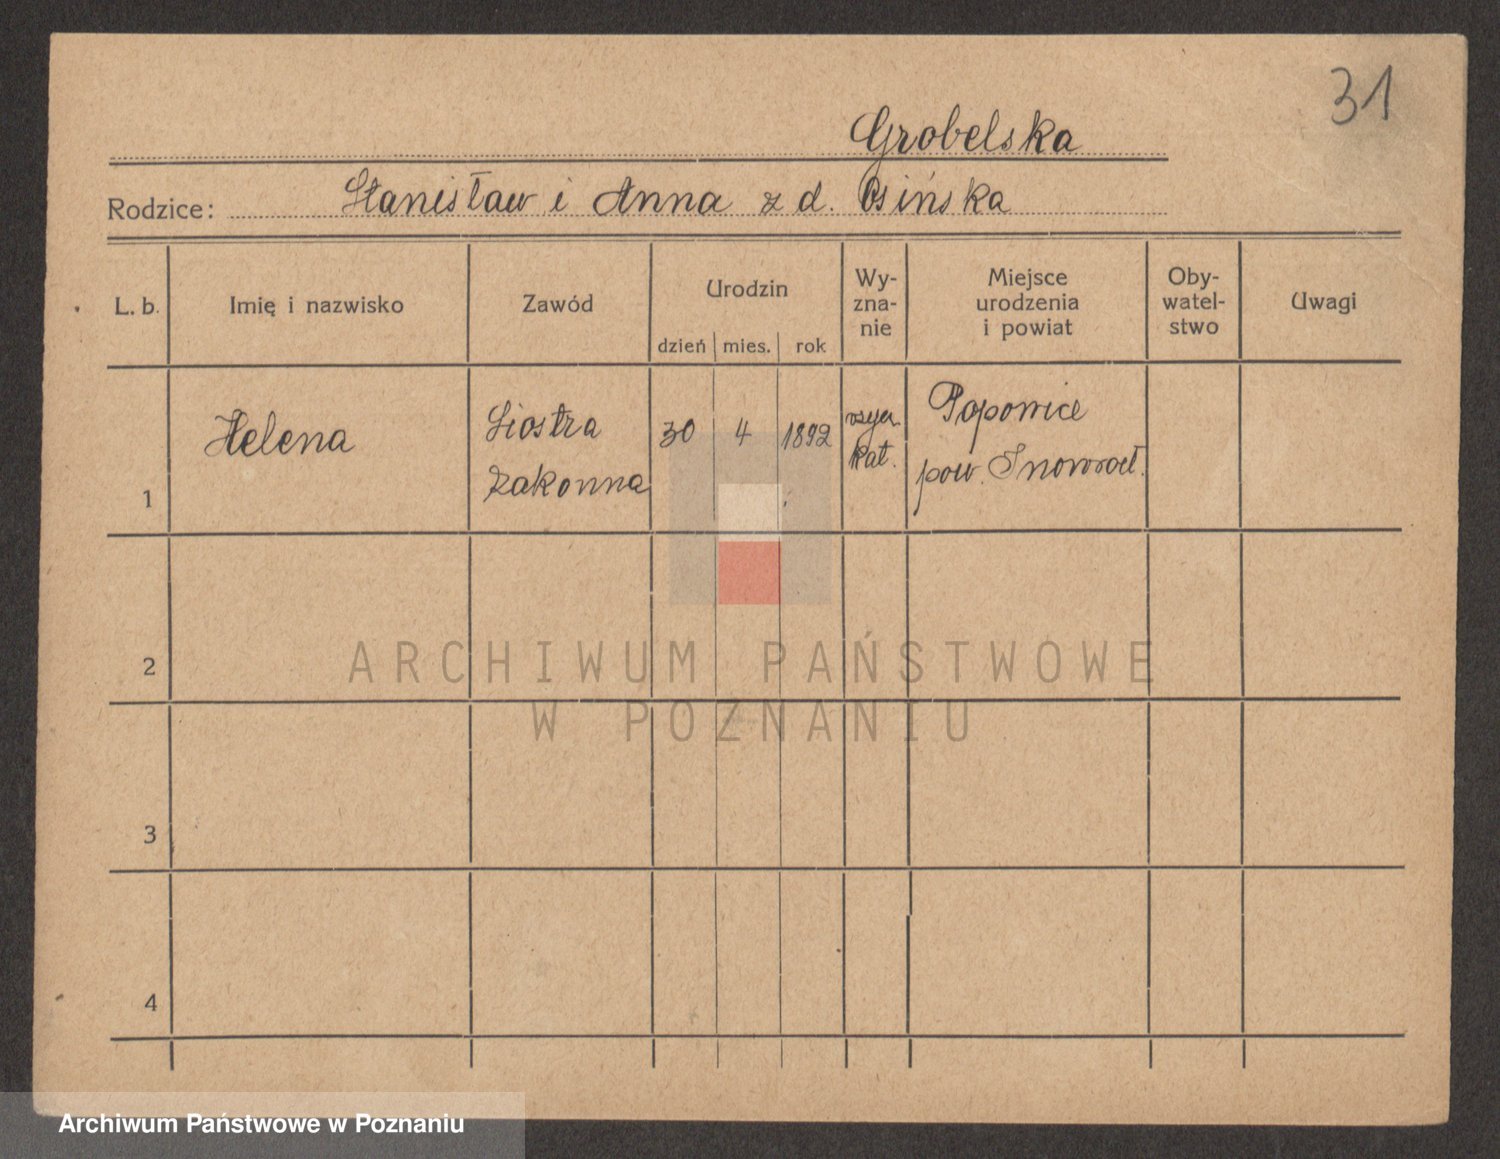 31
Grobelska
Rodzice: Stanisław i Anna z d. Osińska
L. b.
Imię i nazwisko
Zawód
Urodzin
dzień
mies.
rok
Wy-
zna-
nie
Miejsce
urodzenia
i powiat
Oby-
watel-
stwo
Uwagi
1
Helena
Siostra
zakonna
30
4
1892
kat.
Popowice
pow. Inowrocł.
2
3
4
ARCHIWUM PAŃSTWOWE
W POZNANIU
Archiwum Państwowe w Poznaniu